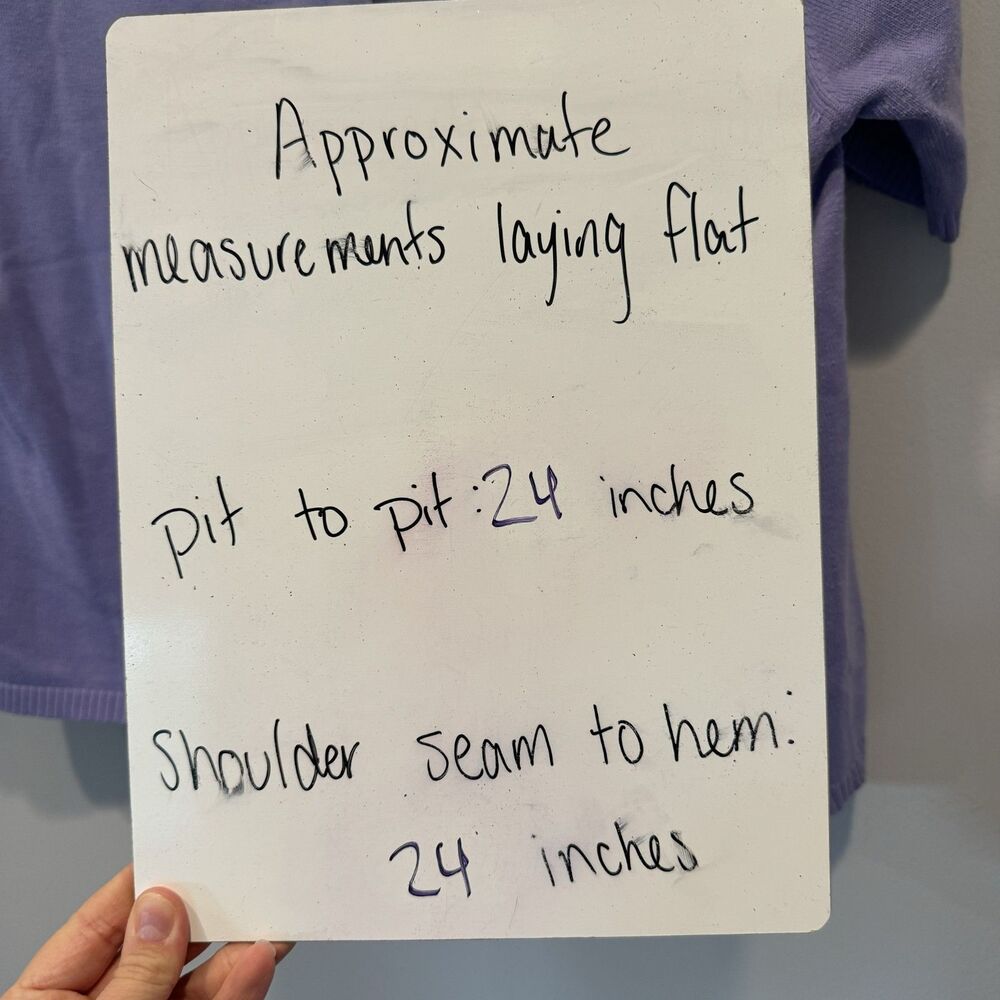 Approximate
measurements laying flat
pit to pit: 24 inches
Shoulder seam to hem:
24 inches